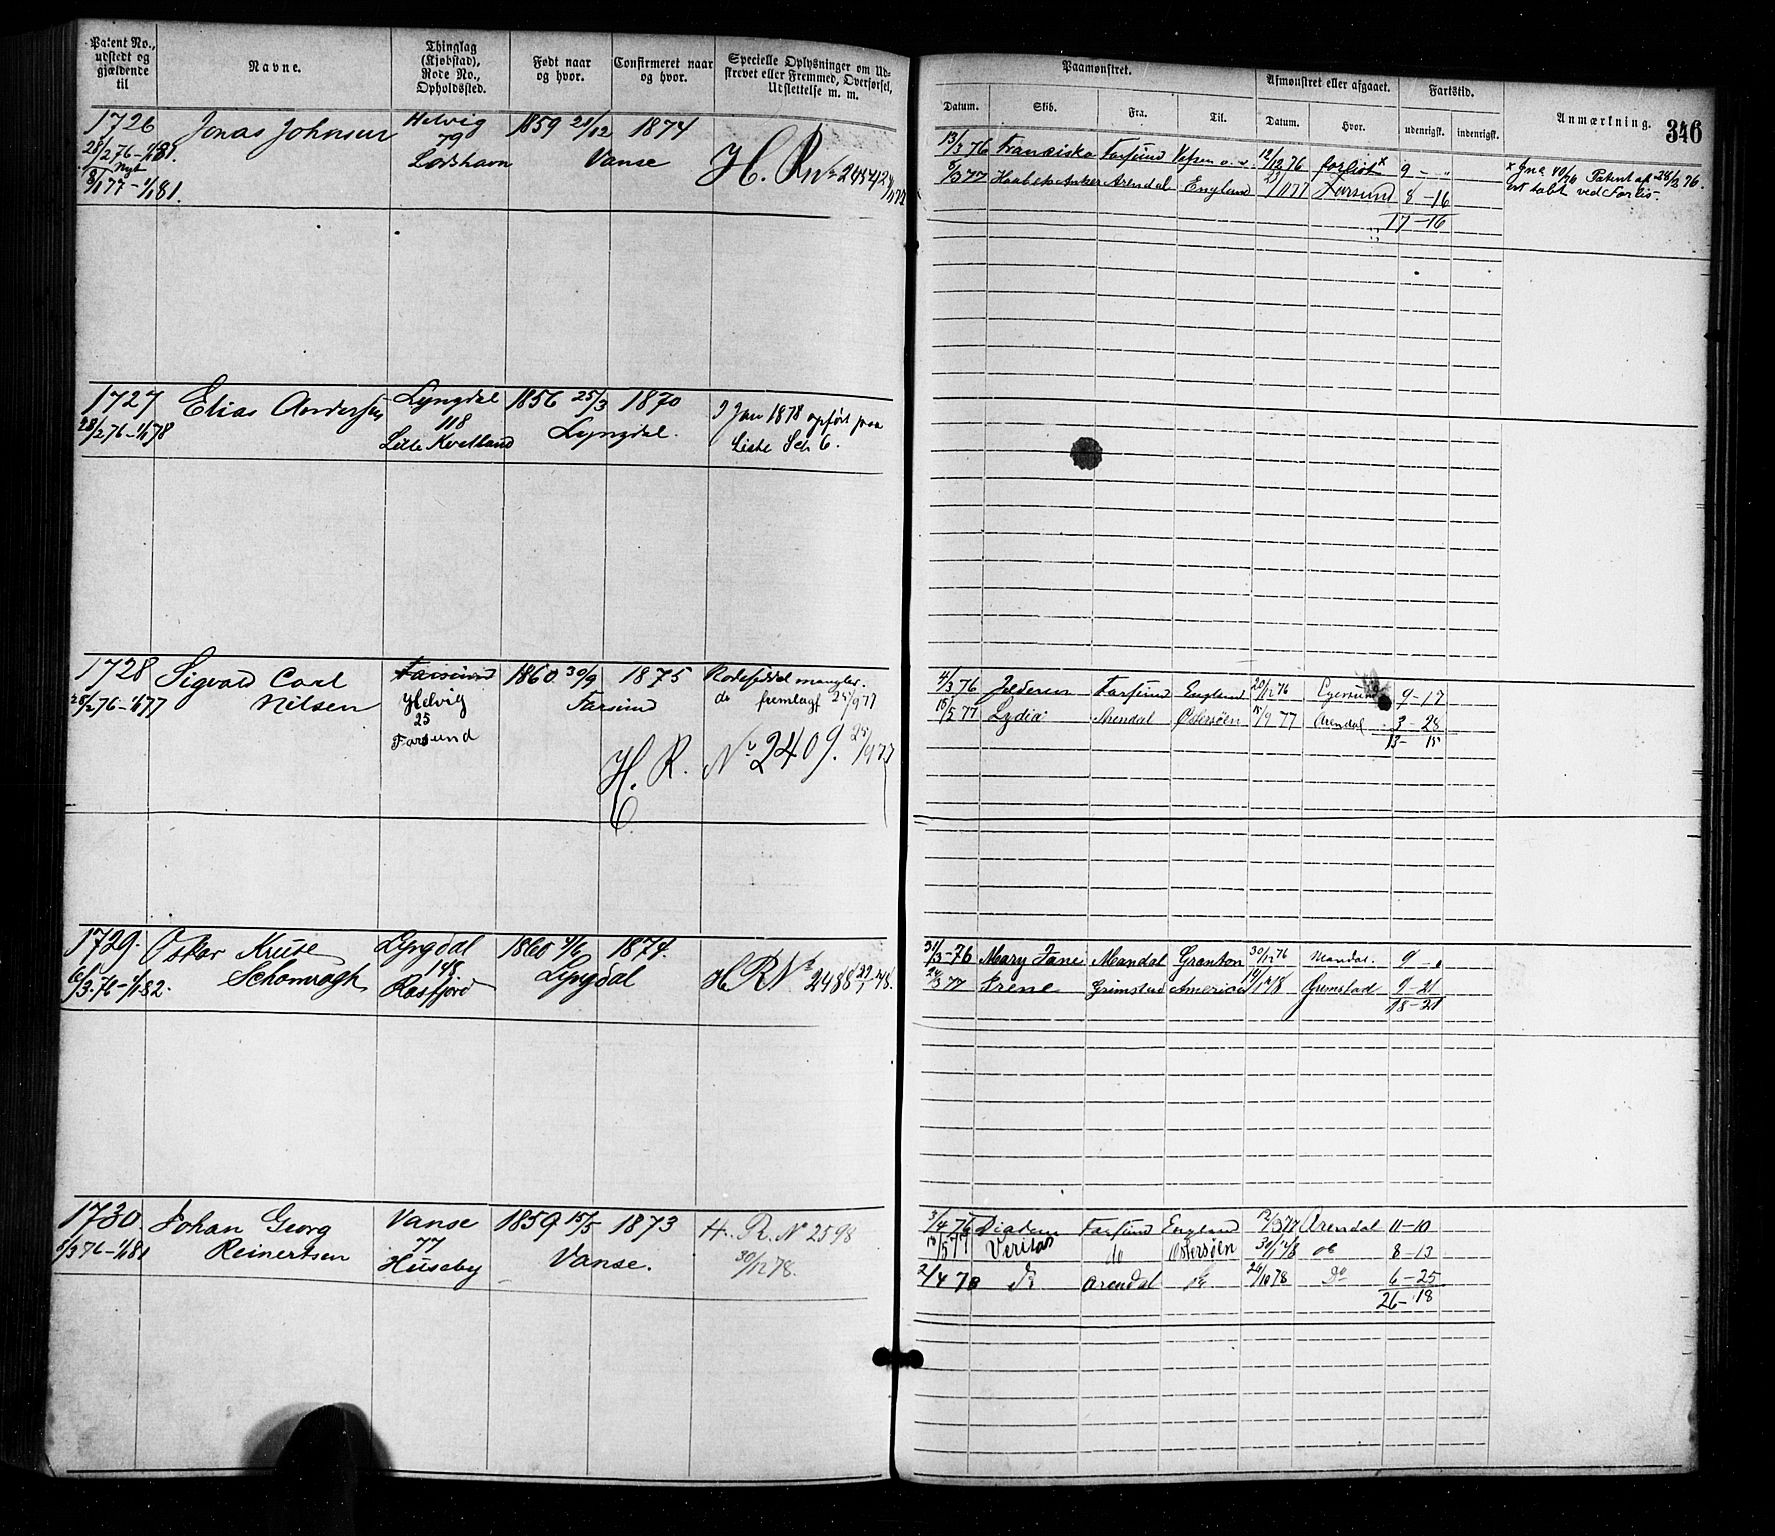 Patent No., udstedt og gjældende til
Navne.
Thinglag (Kjøbstad), Rode No., Opholdssted.
Født naar og hvor.
Confirmeret naar og hvor.
Specielle Oplysninger om Udskrevet eller Fremmed, Overførsel, Udslettelse m. m.
Paamønstret.
Datum.
Skib.
Fra.
Til.
Afmønstret eller afgaaet.
Datum.
Hvor.
Fartstid.
udenrigsk.
indenrigsk.
Anmærkning.
346
1726 Jonas Johnsen Helvig 1859 21/12 1874
28/2 76 - 1/1 81. 79 Vanse
Nyt Lodshavn H. R. No 2454
8/1 77 - 1/1 81.
13/3 76 Franciska Farsund 12/12 76 forlist x 9 - "
8/3 77 Arendal England Farsund 8 - 16
17 - 16
Patent af 28/2 76.
er tabt ved Forlis.
1727 Elias Andersen Lyngdal 1856 25/3 1870 9 Jan 1878 opført paa
28/2 76 - 1/1 78 118 Lyngdal. Liste Sch 6.
Lille Kvelland
1728 Sigvald Carl Farsund 1860 30/9 1875 Rodeseddel mangler.
28/2 76 - 1/1 77 Nilsen Helvig Farsund do fremlagt 25/9 77
25
Farsund
H. R. No 2409. 25/9 77
4/3 76 Jæderen Farsund England 20/12 76 Egersund 9 - 17
18/5 77 Lydia Arendal Østersøen 15/9 77 Arendal 3 - 28
13 - 15
1729. Oskar Kruse Lyngdal 1860 4/6 1874.
6/3 76 - 1/1 82. Schomragh 148. Lyngdal H R No 2488
Rosfjord
31/3 - 76 Mary Jane Mandal Granton 30/12 76 Mandal. 9 - "
24/3 77 Irene Grimstad America 14/1 78 Grimstad 9 - 21
18 - 21
1730. Johan Georg Vanse 1859 15/5 1873 H. R. N 2598
Reinertsen 77 Vanse. 30/12 78.
Huseby
3/4 76 Diadem Farsund England 12/3 77 Arendal 11 - 10
18/5 77 Veritas do Østersøen do 8 - 13
2/4 78 Do Arendal Do 26/10 78 Do 6 - 25
26 - 18